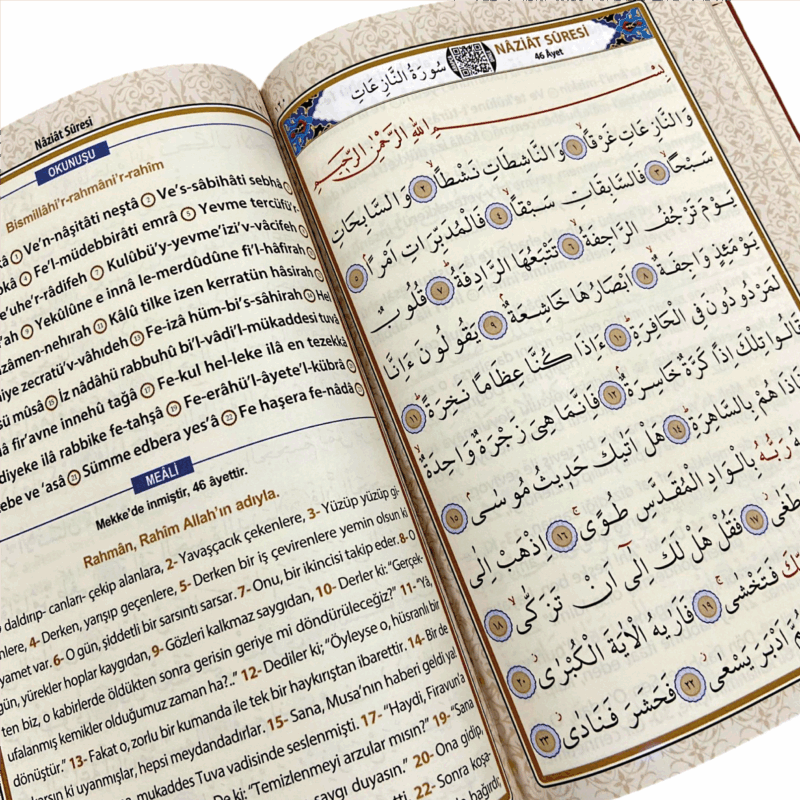 Nâziât Sûresi
OKUNUŞU
Bismillâhi'r-rahmâni'r-rahîm
Ve'n-nâşitâti neştâ ② Ve's-sâbihâti sebhâ
Fe'l-müdebbirâti emrâ ⑤ Yevme tercüfü'r-
'uhe'r-râdifeh ⑦ Kulûbü'y-yevme'izi'v-vâcifeh
'ah ⑨ Yekûlûne e innâ le-merdûdûne fi'l-hâfirah
izâmen-nehırah ⑪ Kâlû tilke izen kerratün hâsirah
hiye zecratü'v-vâhıdeh ⑬ Fe-izâ hüm-bi's-sâhirah ⑭ Hel
sü mûsâ ⑮ İz nâdâhü rabbuhû bi'l-vâdi'l-mükaddesi tuvâ
lâ fir'avne innehû tağâ ⑰ Fe-kul hel-leke ilâ en tezekkâ
diyeke ilâ rabbike fe-tahşâ ⑲ Fe-erâhü'l-âyete'l-kübrâ
ebe ve 'asâ ㉑ Sümme edbera yes'â ㉒ Fe haşera fe-nâdâ
MEÂLİ
Mekke'de inmiştir, 46 âyettir.
Rahmân, Rahîm Allah'ın adıyla.
daldırıp- canları- çekip alanlara, 2- Yavaşçacık çekenlere, 3- Yüzüp yüzüp gi-
nlere, 4- Derken, yarışıp geçenlere, 5- Derken bir iş çevirenlere yemin olsun ki
yamet var. 6- O gün, şiddetli bir sarsıntı sarsar. 7- Onu, bir ikincisi takip eder. 8- O
gün, yürekler hoplar kaygıdan, 9- Gözleri kalkmaz saygıdan, 10- Derler ki: "Gerçek-
ten biz, o kabirlerde öldükten sonra gerisin geriye mi döndürüleceğiz?" 11- "Yâ,
ufalanmış kemikler olduğumuz zaman ha?.." 12- Dediler ki; "Öyleyse o, hüsranlı bir
dönüştür." 13- Fakat o, zorlu bir kumanda ile tek bir haykırıştan ibarettir. 14- Bir de
karsın ki uyanmışlar, hepsi meydandadırlar. 15- Sana, Musa'nın haberi geldi ya!
mukaddes Tuva vadisinde seslenmişti. 17- "Haydi, Firavun'a
De ki: "Temizlenmeyi arzular mısın?" 19- "Sana
saygı duyasın." 20- Ona gidip,
22- Sonra koşa-
bağırdı,
NÂZİÂT SÛRESİ
46 Âyet
سُورَةُ النَّازِعَاتِ
بِسْــــمِ اللهِ الرَّحْمٰنِ الرَّحِيمِ
وَالنَّازِعَاتِ غَرْقًاۙ ﴿١﴾ وَالنَّاشِطَاتِ نَشْطًاۙ ﴿٢﴾ وَالسَّابِحَاتِ
سَبْحًاۙ ﴿٣﴾ فَالسَّابِقَاتِ سَبْقًاۙ ﴿٤﴾ فَالْمُدَبِّرَاتِ اَمْرًاۘ ﴿٥﴾
يَوْمَ تَرْجُفُ الرَّاجِفَةُۙ ﴿٦﴾ تَتْبَعُهَا الرَّادِفَةُۜ ﴿٧﴾ قُلُوبٌ
يَوْمَئِذٍ وَاجِفَةٌۙ ﴿٨﴾ اَبْصَارُهَا خَاشِعَةٌۢ ﴿٩﴾ يَقُولُونَ ءَاِنَّا
لَمَرْدُودُونَ فِي الْحَافِرَةِۜ ﴿١٠﴾ ءَاِذَا كُنَّا عِظَامًا نَخِرَةًۜ ﴿١١﴾
قَالُوا تِلْكَ اِذًا كَرَّةٌ خَاسِرَةٌۢ ﴿١٢﴾ فَاِنَّمَا هِيَ زَجْرَةٌ وَاحِدَةٌۙ
فَاِذَا هُمْ بِالسَّاهِرَةِۜ ﴿١٤﴾ هَلْ اَتٰيكَ حَدِيثُ مُوسٰىۢ ﴿١٥﴾
رَبُّهُ بِالْوَادِ الْمُقَدَّسِ طُوًىۚ ﴿١٦﴾ اِذْهَبْ اِلٰى
طَغٰىۘ ﴿١٧﴾ فَقُلْ هَلْ لَكَ اِلٰٓى اَنْ تَزَكّٰىۙ ﴿١٨﴾
فَتَخْشٰىۚ ﴿١٩﴾ فَاَرٰيهُ الْاٰيَةَ الْكُبْرٰىۘ ﴿٢٠﴾
اَدْبَرَ يَسْعٰىۘ ﴿٢٢﴾ فَحَشَرَ فَنَادٰىۘ ﴿٢٣﴾